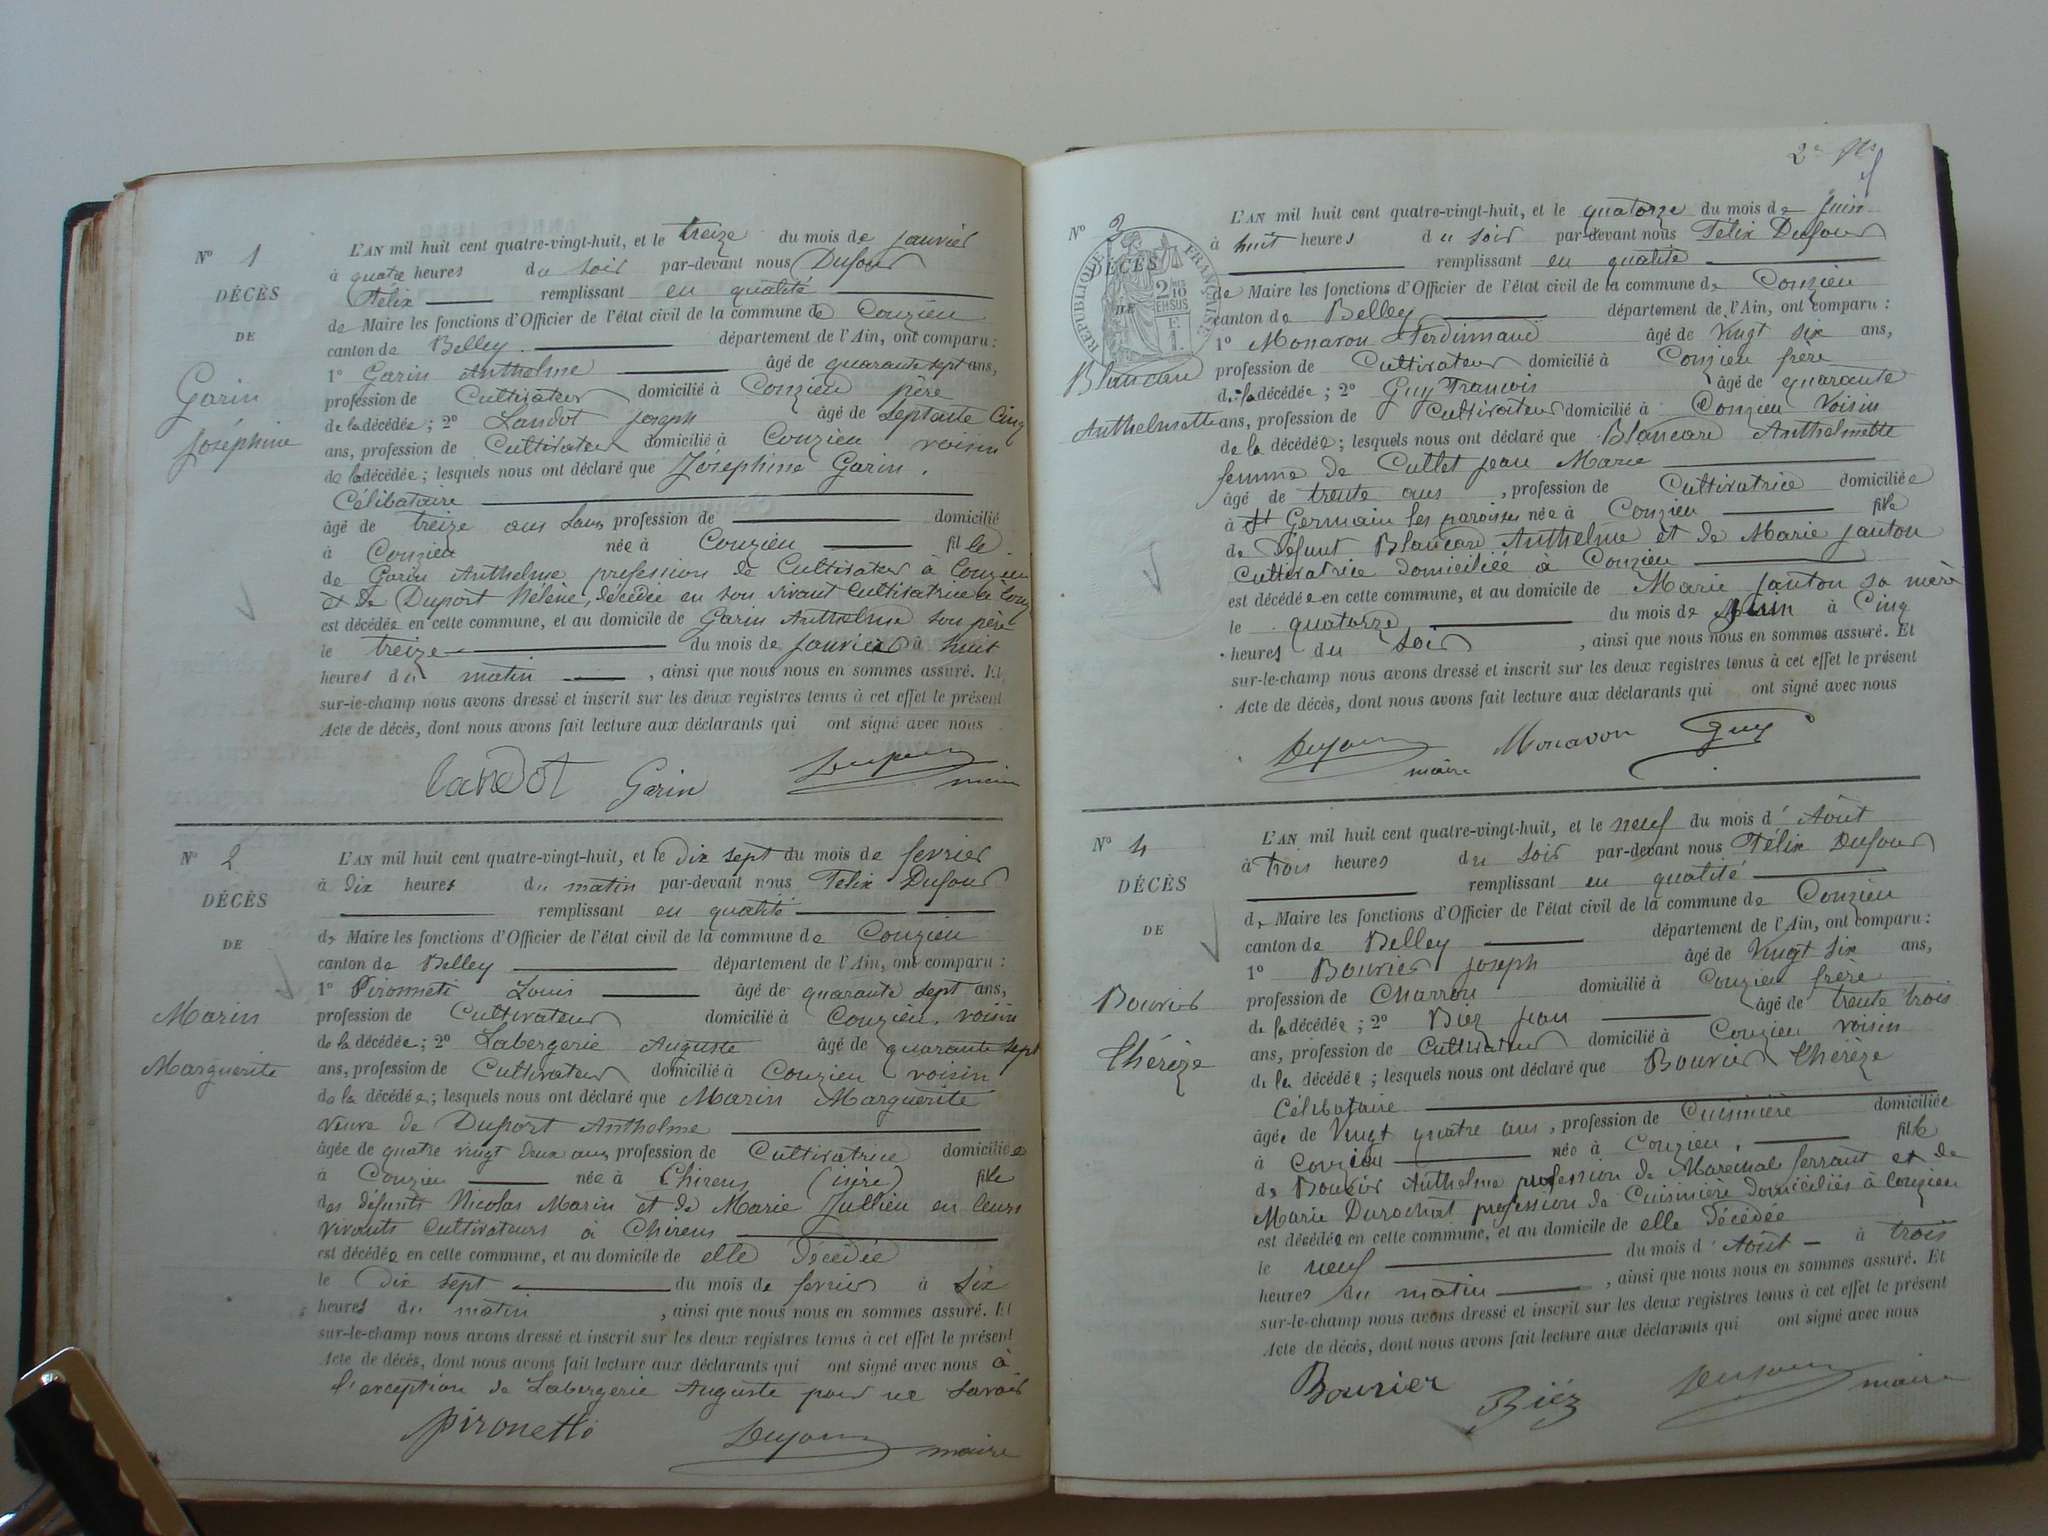 Nº 1
DÉCÈS
DE
Garin
Joséphine
L'AN mil huit cent quatre-vingt-huit, et le treize du mois de janvier
à quatre heures du soir par-devant nous Dufour
Félix remplissant en qualité
de Maire les fonctions d'Officier de l'état civil de la commune de Conzieu
canton de Belley département de l'Ain, ont comparu :
1º Garin Anthelme âgé de quarante sept ans,
profession de Cultivateur domicilié à Conzieu père
de la décédée ; 2º Landot joseph âgé de septante cinq
ans, profession de Cultivateur domicilié à Conzieu voisin
de la décédée ; lesquels nous ont déclaré que Joséphine Garin.
Célibataire
âgé de treize ans sans profession de domicilié
à Conzieu née à Conzieu fille
de Garin Anthelme profession de Cultivateur à Conzieu
et de Duport Hélène, décédée en son vivant Cultivatrice à Conz
est décédée en cette commune, et au domicile de Garin Anthelme son père
le treize du mois de janvier à huit
heures du matin , ainsi que nous nous en sommes assuré. Et
sur-le-champ nous avons dressé et inscrit sur les deux registres tenus à cet effet le présent
Acte de décès, dont nous avons fait lecture aux déclarants qui ont signé avec nous
Landot Garin Dufour
maire
Nº 2
DÉCÈS
DE
Marin
Marguerite
L'AN mil huit cent quatre-vingt-huit, et le dix sept du mois de fevrier
à dix heures du matin par-devant nous Felix Dufour
remplissant en qualité
de Maire les fonctions d'Officier de l'état civil de la commune de Conzieu
canton de Belley département de l'Ain, ont comparu :
1º Pironnetti Louis âgé de quarante sept ans,
profession de Cultivateur domicilié à Conzieu. voisin
de la décédée ; 2º Labergerie Auguste âgé de quarante sept
ans, profession de Cultivateur domicilié à Conzieu voisin
de la décédée ; lesquels nous ont déclaré que Marin Marguerite
veuve de Duport Anthelme
âgée de quatre vingt deux ans profession de Cultivatrice domiciliée
à Conzieu née à Chirens (isère) fille
des défunts Nicolas Marin et de Marie Jullien en leurs
vivants cultivateurs à Chirens
est décédée en cette commune, et au domicile de elle décédée
le dix sept du mois de fevrier à six
heures du matin , ainsi que nous nous en sommes assuré. Et
sur-le-champ nous avons dressé et inscrit sur les deux registres tenus à cet effet le présent
Acte de décès, dont nous avons fait lecture aux déclarants qui ont signé avec nous à
l'exception de Labergerie Auguste pour ne savoir
pironetti Dufour maire
2e
Nº 3
DÉCÈS
DE
RÉPUBLIQUE FRANÇAISE
Blancard
Anthelmette
L'AN mil huit cent quatre-vingt-huit, et le quatorze du mois de juin
à huit heures du soir par-devant nous Félix Dufour
remplissant en qualité
de Maire les fonctions d'Officier de l'état civil de la commune de Conzieu
canton de Belley département de l'Ain, ont comparu :
1º Monavon Ferdinnand âgé de vingt six ans,
profession de Cultivateur domicilié à Conzieu frère
de la décédée ; 2º Guy Francois âgé de quarante
ans, profession de Cultivateur domicilié à Conzieu Voisin
de la décédée ; lesquels nous ont déclaré que Blancard Anthelmette
femme de Cullet jean Marie
âgé de trente ans , profession de Cultivatrice domiciliée
à St Germain les paroisses née à Conzieu fille
de défunt Blancard Anthelme et de Marie janton
Cultivatrice domiciliée à Conzieu
est décédée en cette commune, et au domicile de Marie Janton sa mère
le quatorze du mois de juin à Cinq
heures du soir , ainsi que nous nous en sommes assuré. Et
sur-le-champ nous avons dressé et inscrit sur les deux registres tenus à cet effet le présent
Acte de décès, dont nous avons fait lecture aux déclarants qui ont signé avec nous
Dufour Monavon Guy
maire
Nº 4
DÉCÈS
DE
Bouvier
Thérèze
L'AN mil huit cent quatre-vingt-huit, et le neuf du mois d' Août
à trois heures du soir par-devant nous Félix Dufour
remplissant en qualité
de Maire les fonctions d'Officier de l'état civil de la commune de Conzieu
canton de Belley département de l'Ain, ont comparu :
1º Bouvier joseph âgé de vingt six ans,
profession de Charron domicilié à Conzieu frère
de la décédée ; 2º Biez jean âgé de trente trois
ans, profession de Cultivateur domicilié à Conzieu voisin
de la décédée ; lesquels nous ont déclaré que Bouvier Thérèze
Célibataire
âgée de Vingt quatre ans , profession de Cuisinière domiciliée
à Conzieu née à Conzieu, fille
de Bouvier Anthelme profession de Marechal ferrant et de
Marie Durochat profession de Cuisinière domiciliés à Conzieu
est décédée en cette commune, et au domicile de elle décédée
le neuf du mois d' Août à trois
heures du matin , ainsi que nous nous en sommes assuré. Et
sur-le-champ nous avons dressé et inscrit sur les deux registres tenus à cet effet le présent
Acte de décès, dont nous avons fait lecture aux déclarants qui ont signé avec nous
Bouvier Biéz Dufour maire